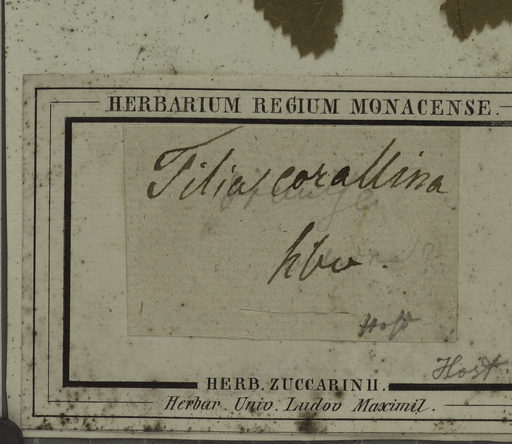 HERBARIUM REGIUM MONACENSE.
Tilia corallina
hbv.
Host
Host.
HERB. ZUCCARINII.
Herbar. Univ. Ludov Maximil.